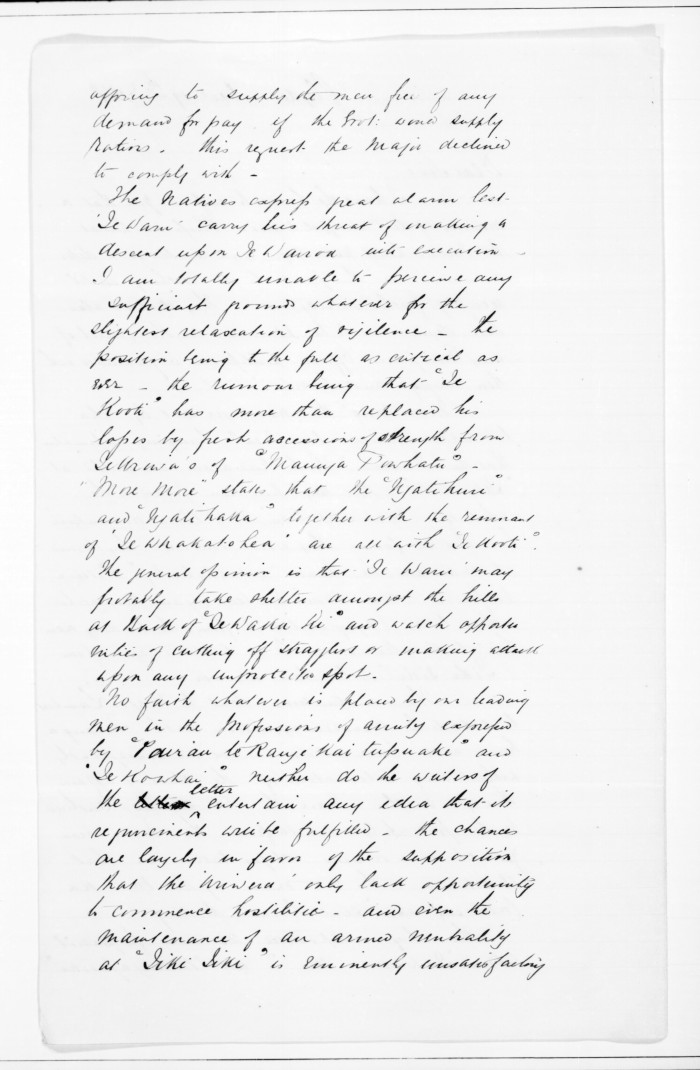 offering to supply the men free of any
demand for pay if the Govt: would supply
rations. This request the Major declined
to comply with –
The Natives express great alarm lest
"Te Waru" carry his threat of making a
descent upon Te Wairoa into execution –
I am totally unable to perceive any
sufficient grounds whatever for the
slightest relaxation of vigilence – the
position being to the full as critical as
ever – the rumour being that "Te
Kooti" has more than replaced his
losses by fresh accessions of strength from
of "Maunga Powhatu" –
"More More" states that the "Ngatihuri"
and "Ngatihaka" together with the remnant
of "Te Whakatohea" are all with "Te Kooti".
The general opinion is that "Te Waru" may
probably take shelter amongst the hills
at Back of "Te Waka Ki" and watch opportu
nities of cutting off stragglers or making attack
upon any unprotected spot.
No faith whatever is placed by our leading
men in the professions of amity expressed
by "Paerau te Rangi Kai tupuake" and
"Te Kowhai" neither do the writers of
the letter entertain any idea that its
requirements will be fulfilled – the chances
are largely in favor of the supposition
that the "Uriwera" only lack opportunity
to commence hostilitie – and even the
maintenance of an armed neutrality
at "Tiki Tiki" is eminently unsatisfactory